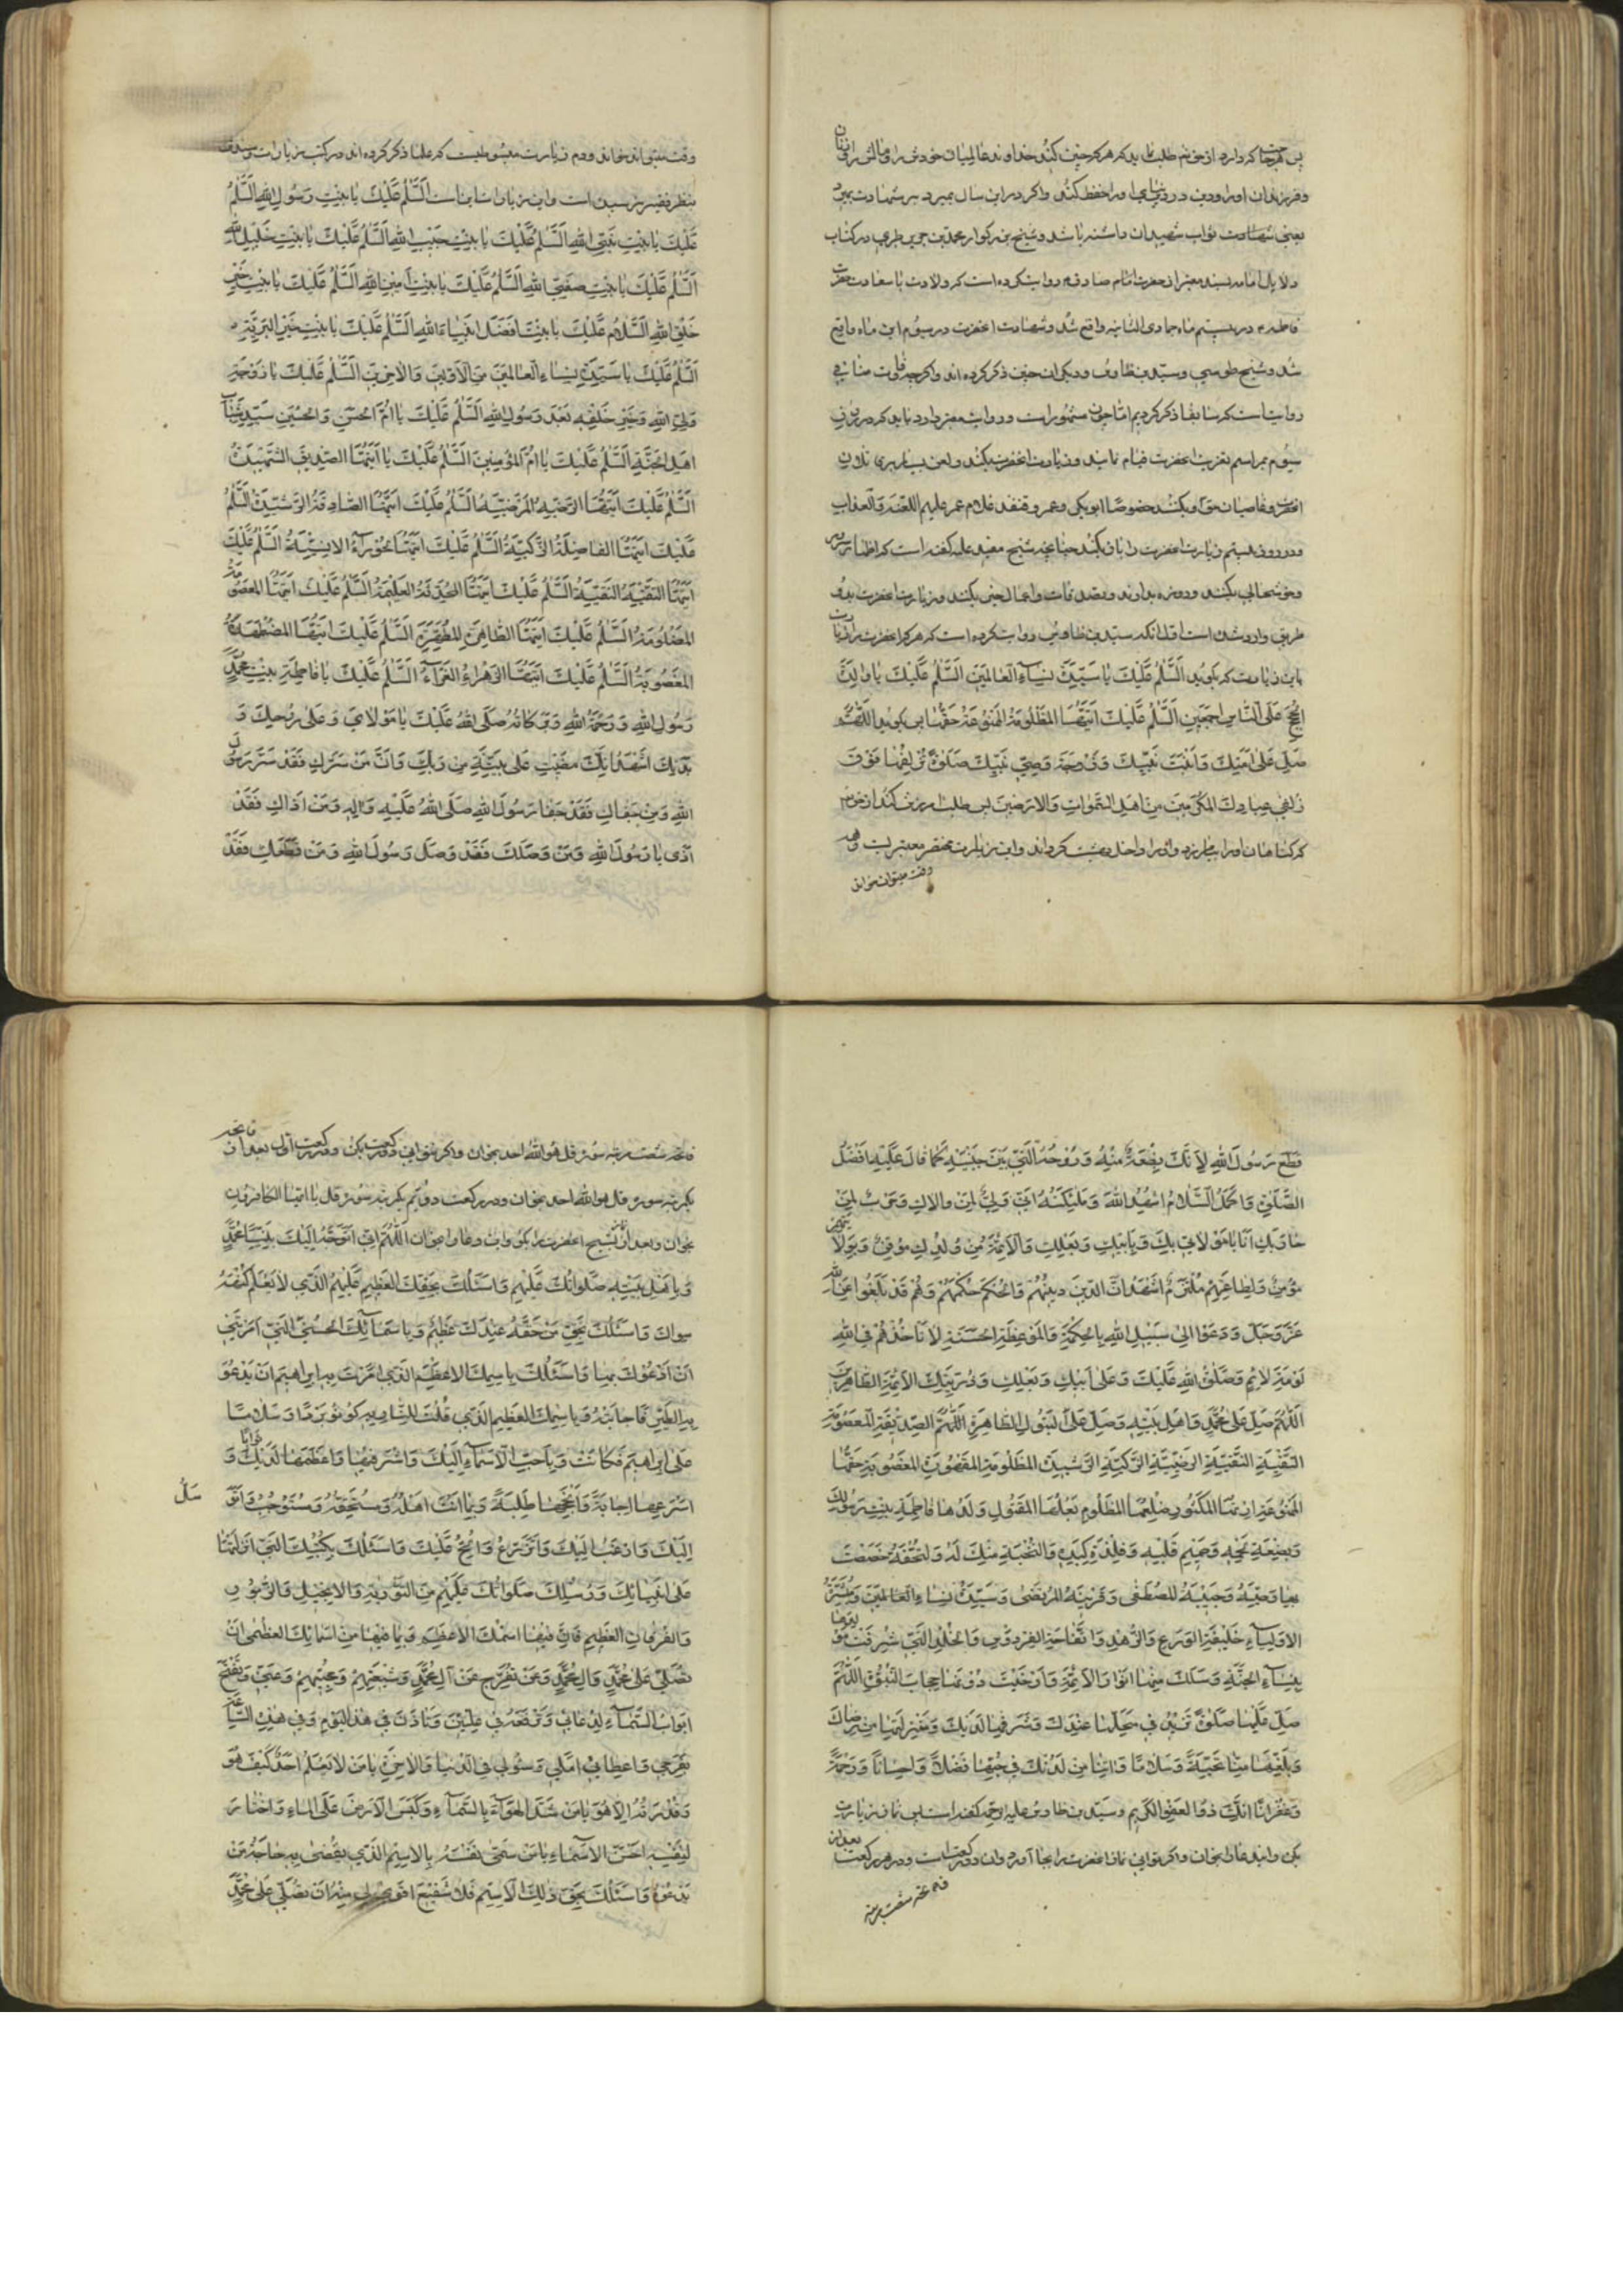 پس هر حاجت که دارد از حق تم طلب نماید که هر که چنین کند خداوند عالمیان خودش را و مالش را و
و فرزندان او را و دین و دنیای او را حفظ کند و اگر در این سال بمیرد بر شهادت بمیرد
یعنی شهادت ثواب شهیدان داشته باشد و شیخ بزرکوار محمد بن جریر طبری در کتاب
دلایل امامه بسند معتبر از حضرت امام صادق روایت کرده است که ولادت با سعادت حضرت
فاطمه در بیستم ماه جمادی الثانیه واقع شد و شهادت انحضرت در سیوم این ماه واقع
شد و شیخ طوسی و سید بن طاوس و دیگران چنین ذکر کرده اند و اگر چه تفاوت منافی
روایتیست که سابقا ذکر کردیم اما چون مشهور است و روایت معتبر دارد باید که در روز
سیوم مراسم تعزیت انحضرت قیام نمایند و زیارت انحضرت بکنند و لعن بسیار بر
و غاصبان حق او بکنند خصوصا ابوبکر و عمر و قنفذ غلام عمر علیهم اللعنة و العذاب
و در روز بیستم زیارت انحضرت را بکنند چنانچه شیخ مفید علیه گفته است که اظهار سرور
و خوشحالی بکنند و روزه بدارند و تصدقات و اعمال خیر بکنند و زیارت انحضرت بدو
طریق وارد شده است اول انکه سید بن طاوس روایت کرده است که هر که انحضرت را زیارت
باین زیارت که بکوید اَلسَّلٰمُ عَلَیْكَ یٰا سَیِّدَةَ نِسٰآءِ الْعٰالَمِینَ اَلسَّلٰمُ عَلَیْكَ یٰا وٰالِدَةَ
الْحُجَجِ عَلَی النّٰاسِ اَجْمَعِینَ اَلسَّلٰمُ عَلَیْكَ اَیَّتُهَا الْمَظْلُومَةُ الْمَمْنُوعَةُ حَقُّهٰا پس بکوید اَللّٰهُمَّ
صَلِّ عَلٰی اَمَتِكَ وَ ابْنَتِ نَبِیِّكَ وَ زَوْجَةِ وَصِیِّ نَبِیِّكَ صَلٰوةً تُزْلِفُهٰا فَوْقَ
زُلْفٰی عِبٰادِكَ الْمُکَرَّمِینَ مِنْ اَهْلِ السَّمٰوٰاتِ وَ الْاَرَضِینَ پس طلب امرزش کند از
که کناهان او را بیامرزد و او را داخل بهشت کرداند و این زیارت مختصر معتبریست و همه
وقت میتوان خواند
وقت میتواند خواند و دوم زیارت مبسوطیست که علما ذکر کرده اند در کتب زیارات و سندش
بنظر فقیر نرسیده است و این زیارات اینست اَلسَّلٰمُ عَلَیْكَ یٰا بِنْتَ رَسُولِ اللهِ اَلسَّلٰمُ
عَلَیْكَ یٰا بِنْتَ نَبِیِّ اللهِ اَلسَّلٰمُ عَلَیْكَ یٰا بِنْتَ حَبِیبِ اللهِ اَلسَّلٰمُ عَلَیْكَ یٰا بِنْتَ خَلِیلِ اللهِ
اَلسَّلٰمُ عَلَیْكَ یٰا بِنْتَ صَفِیِّ اللهِ اَلسَّلٰمُ عَلَیْكَ یٰا بِنْتَ اَمِینِ اللهِ اَلسَّلٰمُ عَلَیْكَ یٰا بِنْتَ خَیْرِ
خَلْقِ اللهِ اَلسَّلٰامُ عَلَیْكَ یٰا بِنْتَ اَفْضَلِ اَنْبِیٰاءِ اللهِ اَلسَّلٰمُ عَلَیْكَ یٰا بِنْتَ خَیْرِ الْبَرِیَّةِ
اَلسَّلٰمُ عَلَیْكَ یٰا سَیِّدَةَ نِسٰاءِ الْعٰالَمِینَ مِنَ الْاَوَّلِینَ وَ الْاٰخِرِینَ اَلسَّلٰمُ عَلَیْكَ یٰا زَوْجَةَ
وَلِیِّ اللهِ وَ خَیْرِ خَلْقِهِ بَعْدَ رَسُولِ اللهِ اَلسَّلٰمُ عَلَیْكَ یٰا اُمَّ الْحَسَنِ وَ الْحُسَیْنِ سَیِّدَیْ شَبٰابِ
اَهْلِ الْجَنَّةِ اَلسَّلٰمُ عَلَیْكَ یٰا اُمَّ الْمُؤْمِنِینَ اَلسَّلٰمُ عَلَیْكَ یٰا اَیَّتُهَا الصِّدِّیقَةُ الشَّهِیدَةُ
اَلسَّلٰمُ عَلَیْكَ اَیَّتُهَا الرَّضِیَّةُ الْمَرْضِیَّةُ اَلسَّلٰمُ عَلَیْكَ اَیَّتُهَا الصّٰادِقَةُ الرَّشِیدَةُ اَلسَّلٰمُ
عَلَیْكَ اَیَّتُهَا الْفٰاضِلَةُ الزَّکِیَّةُ اَلسَّلٰمُ عَلَیْكَ اَیَّتُهَا الْحَوْرٰآءُ الْاِنْسِیَّةُ اَلسَّلٰمُ عَلَیْكَ
اَیَّتُهَا التَّقِیَّةُ النَّقِیَّةُ اَلسَّلٰمُ عَلَیْكَ اَیَّتُهَا الْمُحَدَّثَةُ الْعَلِیمَةُ اَلسَّلٰمُ عَلَیْكَ اَیَّتُهَا الْمَعْصُومَةُ
الْمَظْلُومَةُ اَلسَّلٰمُ عَلَیْكَ اَیَّتُهَا الطّٰاهِرَةُ الْمُطَهَّرَةُ اَلسَّلٰمُ عَلَیْكَ اَیَّتُهَا الْمُضْطَهَدَةُ
الْمَغْصُوبَةُ اَلسَّلٰمُ عَلَیْكَ اَیَّتُهَا الزَّهْرٰاءُ الْغَرّٰآءُ اَلسَّلٰمُ عَلَیْكَ یٰا فٰاطِمَةُ بِنْتَ مُحَمَّدٍ
رَسُولِ اللهِ وَ رَحْمَةُ اللهِ وَ بَرَکٰاتُهُ صَلَّی اللهُ عَلَیْكَ یٰا مَوْلٰاتِی وَ عَلٰی رُوحِكَ وَ
بَدَنِكَ اَشْهَدُ اَنَّكَ مَضَیْتِ عَلٰی بَیِّنَةٍ مِنْ رَبِّكِ وَ اَنَّ مَنْ سَرَّكِ فَقَدْ سَرَّ رَسُولَ
اللهِ وَ مَنْ جَفٰاكِ فَقَدْ جَفٰا رَسُولَ اللهِ صَلَّی اللهُ عَلَیْهِ وَ اٰلِهِ وَ مَنْ اٰذٰاكِ فَقَدْ
اٰذٰی رَسُولَ اللهِ وَ مَنْ وَصَلَكَ فَقَدْ وَصَلَ رَسُولَ اللهِ وَ مَنْ قَطَعَكِ فَقَدْ
قَطَعَ رَسُولَ اللهِ لِاَنَّكَ بِضْعَةٌ مِنْهُ وَ رُوحُهُ الَّتِی بَیْنَ جَنْبَیْهِ کَمٰا قٰالَ عَلَیْهِ اَفْضَلُ
الصَّلٰوةِ وَ اَکْمَلُ السَّلٰامُ اُشْهِدُ اللهَ وَ مَلٰئِکَتَهُ اَنِّی وَلِیٌّ لِمَنْ وٰالٰاكِ وَ حَرْبٌ لِمَنْ
حٰارَبَكِ اَنَا یٰا مَوْلٰاتِی بِكِ وَ بِاَبِیكِ وَ بَعْلِكِ وَ الْاَئِمَّةِ مِنْ وُلْدِكِ مُوقِنٌ وَ بِوَلٰایَتِهِمْ
مُؤْمِنٌ وَ لِطٰاعَتِهِمْ مُلْتَزِمٌ اَشْهَدُ اَنَّ الدِّینَ دِینُهُمْ وَ الْحُکْمَ حُکْمُهُمْ وَ هُمْ قَدْ بَلَّغُوا عَنِ اللهِ
عَزَّ وَ جَلَّ وَ دَعَوْا اِلٰی سَبِیلِ اللهِ بِالْحِکْمَةِ وَ الْمَوْعِظَةِ الْحَسَنَةِ لٰا تَأْخُذُهُمْ فِی اللهِ
لَوْمَةُ لٰائِمٍ وَ صَلَوٰاتُ اللهِ عَلَیْكَ وَ عَلٰی اَبِیكِ وَ بَعْلِكِ وَ ذُرِّیَّتِكَ الْاَئِمَّةِ الطّٰاهِرِینَ
اَللّٰهُمَّ صَلِّ عَلٰی مُحَمَّدٍ وَ اَهْلِ بَیْتِهِ وَ صَلِّ عَلَی الْبَتُولِ الطّٰاهِرَةِ الصِّدِّیقَةِ الْمَعْصُومَةِ
التَّقِیَّةِ النَّقِیَّةِ الرَّضِیَّةِ الزَّکِیَّةِ الرَّشِیدَةِ الْمَظْلُومَةِ الْمَقْهُورَةِ الْمَغْصُوبَةِ حَقُّهٰا
الْمَمْنُوعَةِ اِرْثُهَا الْمَکْسُورِ ضِلْعُهَا الْمَظْلُومِ بَعْلُهَا الْمَقْتُولِ وَلَدُهٰا فٰاطِمَةَ بِنْتِ رَسُولِكَ
وَ بِضْعَةِ لَحْمِهِ وَ صَمِیمِ قَلْبِهِ وَ فِلْذَةِ کَبِدِهِ وَ النُّخْبَةِ مِنْكَ لَهُ وَ التُّحْفَةِ خَصَصْتَ
بِهٰا وَصِیَّهُ وَ حَبِیبَةِ الْمُصْطَفٰی وَ قَرِینَةِ الْمُرْتَضٰی وَ سَیِّدَةِ نِسٰاءِ الْعٰالَمِینَ وَ مُبَشِّرَةِ
الْاَوْلِیٰاءِ حَلِیفَةِ الْوَرَعِ وَ الزُّهْدِ وَ تُفّٰاحَةِ الْفِرْدَوْسِ وَ الْخُلْدِ الَّتِی شَرَّفْتَ مَوْلِدَهٰا
بِنِسٰآءِ الْجَنَّةِ وَ سَلَلْتَ مِنْهٰا اَنْوٰارَ الْاَئِمَّةِ وَ اَرْخَیْتَ دُونَهٰا حِجٰابَ النُّبُوَّةِ اَللّٰهُمَّ
صَلِّ عَلَیْهٰا صَلٰوةً تَزِیدُ فِی مَحَلِّهٰا عِنْدَكَ وَ شَرَفِهٰا لَدَیْكَ وَ مَنْزِلَتِهٰا مِنْ رِضٰاكَ
وَ بَلِّغْهٰا مِنّٰا تَحِیَّةً وَ سَلٰامًا وَ اٰتِنٰا مِنْ لَدُنْكَ فِی حُبِّهٰا فَضْلًا وَ اِحْسٰانًا وَ رَحْمَةً
وَ غُفْرٰانًا اِنَّكَ ذُو الْعَفْوِ الْکَرِیمِ و سید بن طاوس علیه الرحمه کفته است پس نماز زیارت
بکن و این دعا را بخوان و اکر توانی نماز انحضرت را بجا آور و ان دو رکعت است و در هر رکعت بعد از
فاتحه شصت مرتبه
فاتحه شصت مرتبه سورهٔ قل هو الله احد بخوان و اکر نتوانی دو رکعت بکن و در رکعت اول بعد از فاتحه
یکمرتبه سورهٔ قل هو الله احد بخوان و در رکعت دویم یکمرتبه سورهٔ قل یا ایها الکافرون
بخوان و بعد از نماز تسبیح انحضرت را بکو و این دعا را بخوان اَللّٰهُمَّ اِنِّی اَتَوَجَّهُ اِلَیْكَ بِنَبِیِّنٰا مُحَمَّدٍ
وَ بِاَهْلِ بَیْتِهِ صَلَوٰاتُكَ عَلَیْهِمْ وَ اَسْئَلُكَ بِحَقِّكَ الْعَظِیمِ عَلَیْهِمُ الَّذِی لٰا یَعْلَمُ کُنْهَهُ
سِوٰاكَ وَ اَسْئَلُكَ بِحَقِّ مَنْ حَقُّهُ عِنْدَكَ عَظِیمٌ وَ بِاَسْمٰآئِكَ الْحُسْنَی الَّتِی اَمَرْتَنِی
اَنْ اَدْعُوَكَ بِهٰا وَ اَسْئَلُكَ بِاسْمِكَ الْاَعْظَمِ الَّذِی اَمَرْتَ بِهِ اِبْرٰاهِیمَ اَنْ یَدْعُوَ
بِهِ الطَّیْرَ فَاَجٰابَتْهُ وَ بِاسْمِكَ الْعَظِیمِ الَّذِی قُلْتَ لِلنّٰارِ بِهِ کُونِی بَرْدًا وَ سَلٰامًا
عَلٰی اِبْرٰاهِیمَ فَکٰانَتْ وَ بِاَحَبِّ الْاَسْمٰآءِ اِلَیْكَ وَ اَشْرَفِهٰا وَ اَعْظَمِهٰا لَدَیْكَ وَ
اَسْرَعِهٰا اِجٰابَةً وَ اَنْجَحِهٰا طَلِبَةً وَ بِمٰا اَنْتَ اَهْلُهُ وَ مُسْتَحِقُّهُ وَ مُسْتَوْجِبُهُ وَ اَتَوَسَّلُ
اِلَیْكَ وَ اَرْغَبُ اِلَیْكَ وَ اَتَضَرَّعُ وَ اُلِحُّ عَلَیْكَ وَ اَسْئَلُكَ بِکُتُبِكَ الَّتِی اَنْزَلْتَهٰا
عَلٰی اَنْبِیٰائِكَ وَ رُسُلِكَ صَلَوٰاتُكَ عَلَیْهِمْ مِنَ التَّوْرٰیةِ وَ الْاِنْجِیلِ وَ الزَّبُورِ
وَ الْقُرْاٰنِ الْعَظِیمِ فَاِنَّ فِیهَا اسْمَكَ الْاَعْظَمَ وَ بِمٰا فِیهٰا مِنْ اَسْمٰائِكَ الْعُظْمٰی اَنْ
تُصَلِّیَ عَلٰی مُحَمَّدٍ وَ اٰلِ مُحَمَّدٍ وَ اَنْ تُفَرِّجَ عَنْ اٰلِ مُحَمَّدٍ وَ شِیعَتِهِمْ وَ مُحِبِّیهِمْ وَ عَنِّی وَ تَفْتَحَ
اَبْوٰابَ السَّمٰآءِ لِدُعٰائِی وَ تَرْفَعَهُ فِی عِلِّیِّینَ وَ تَأْذَنَ فِی هٰذَا الْیَوْمِ وَ فِی هٰذِهِ السّٰاعَةِ
بِفَرَجِی وَ اِعْطٰاءِ اَمَلِی وَ سُؤْلِی فِی الدُّنْیٰا وَ الْاٰخِرَةِ یٰا مَنْ لٰا یَعْلَمُ اَحَدٌ کَیْفَ هُوَ
وَ قُدْرَتَهُ اِلّٰا هُوَ یٰا مَنْ سَدَّ الْهَوٰآءَ بِالسَّمٰآءِ وَ کَبَسَ الْاَرْضَ عَلَی الْمٰاءِ وَ اخْتٰارَ
لِنَفْسِهِ اَحْسَنَ الْاَسْمٰاءِ یٰا مَنْ سَمّٰی نَفْسَهُ بِالْاِسْمِ الَّذِی یُقْضٰی بِهِ حٰاجَةُ مَنْ
یَدْعُوهُ وَ اَسْئَلُكَ بِحَقِّ ذٰلِكَ الْاِسْمِ فَلٰا شَفِیعَ اَقْوٰی لِی مِنْهُ اَنْ تُصَلِّیَ عَلٰی مُحَمَّدٍ